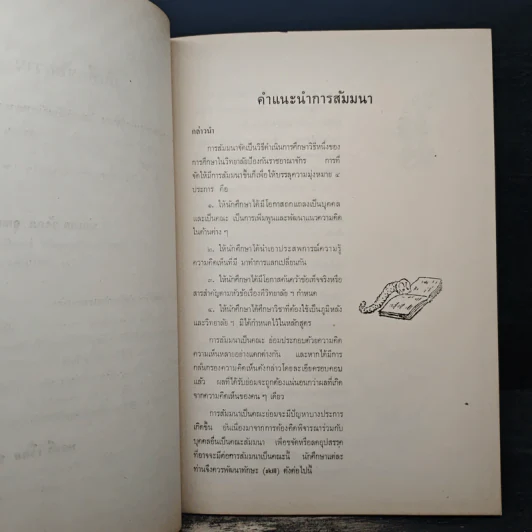 คำแนะนำการสัมมนา
กล่าวนำ
การสัมมนาจัดเป็นวิธีดำเนินการศึกษาวิธีหนึ่งของ
การศึกษาในวิทยาลัยป้องกันราชอาณาจักร การที่
จัดให้มีการสัมมนาขึ้นก็เพื่อให้บรรลุความมุ่งหมาย ๔
ประการ คือ
๑. ให้นักศึกษาได้มีโอกาสออกแถลงเป็นบุคคล
และเป็นคณะ เป็นการเพิ่มพูนและพัฒนาแนวความคิด
ในด้านต่าง ๆ
๒. ให้นักศึกษาได้นำเอาประสพการณ์ความรู้
ความคิดเห็นที่มี มาทำการแลกเปลี่ยนกัน
๓. ให้นักศึกษาได้มีโอกาสค้นคว้าข้อเท็จจริงหรือ
สารสำคัญตามหัวข้อเรื่องที่วิทยาลัย ฯ กำหนด
๔. ให้นักศึกษาได้ศึกษาวิชาที่ต้องใช้เป็นภูมิหลัง
และวิทยาลัย ฯ มิได้กำหนดไว้ในหลักสูตร
การสัมมนาเป็นคณะ ย่อมประกอบด้วยความคิด
ความเห็นหลายอย่างแตกต่างกัน และหากได้มีการ
กลั่นกรองความคิดเห็นดังกล่าวโดยละเอียดรอบคอบ
แล้ว ผลที่ได้รับย่อมจะถูกต้องแน่นอนกว่าผลที่เกิด
จากความคิดเห็นของคน ๆ เดียว
การสัมมนาเป็นคณะย่อมจะมีปัญหาบางประการ
เกิดขึ้น อันเนื่องมาจากการต้องคิดพิจารณาร่วมกับ
บุคคลอื่นเป็นคณะสัมมนา เพื่อขจัดหรือลดอุปสรรค
ที่อาจจะมีต่อการสัมมนาเป็นคณะนี้ นักศึกษาแต่ละ
ท่านจึงควรพัฒนาทักษะ ดังต่อไปนี้